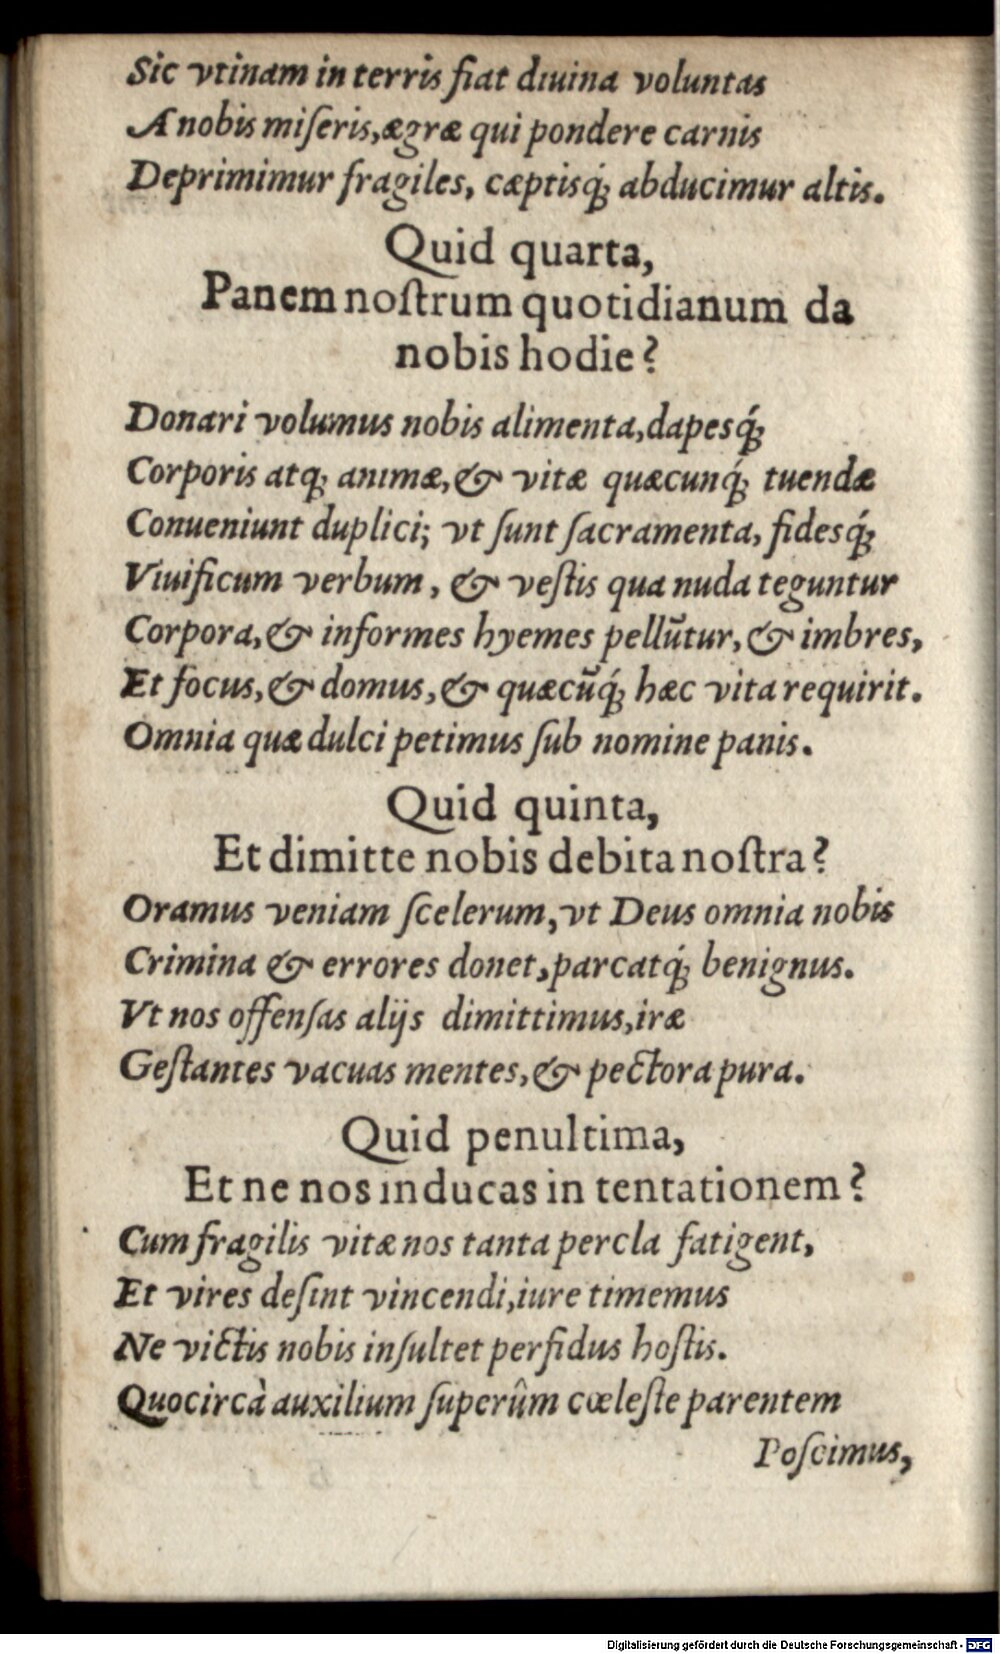 Sic vtinam in terris ſiat diuina voluntas
A nobis miſeris, ægræ qui pondere carnis
Deprimimur fragiles, cæptisq́; abducimur altis.
Quid quarta,
Panem noſtrum quotidianum da
nobis hodie?
Donari volumus nobis alimenta, dapesq́;
Corporis atq; animæ, & vitæ quæcunq́; tuendæ
Conueniunt duplici; vt ſunt ſacramenta, fidesq́;
Viuificum verbum, & veſtis qua nuda teguntur
Corpora, & informes hyemes pellũtur, & imbres,
Et focus, & domus, & quæcũq́; hæc vita requirit.
Omnia quæ dulci petimus ſub nomine panis.
Quid quinta,
Et dimitte nobis debita noſtra?
Oramus veniam ſcelerum, vt Deus omnia nobis
Crimina & errores donet, parcatq́; benignus.
Vt nos offenſas alijs dimittimus, iræ
Geſtantes vacuas mentes, & pectora pura.
Quid penultima,
Et ne nos inducas in tentationem?
Cum fragilis vitæ nos tanta percla fatigent,
Et vires deſint vincendi, iure timemus
Ne victis nobis inſultet perfidus hoſtis.
Quocircà auxilium ſuperûm cœleſte parentem
Poſcimus,
Digitalisierung gefördert durch die Deutsche Forschungsgemeinschaft - DFG